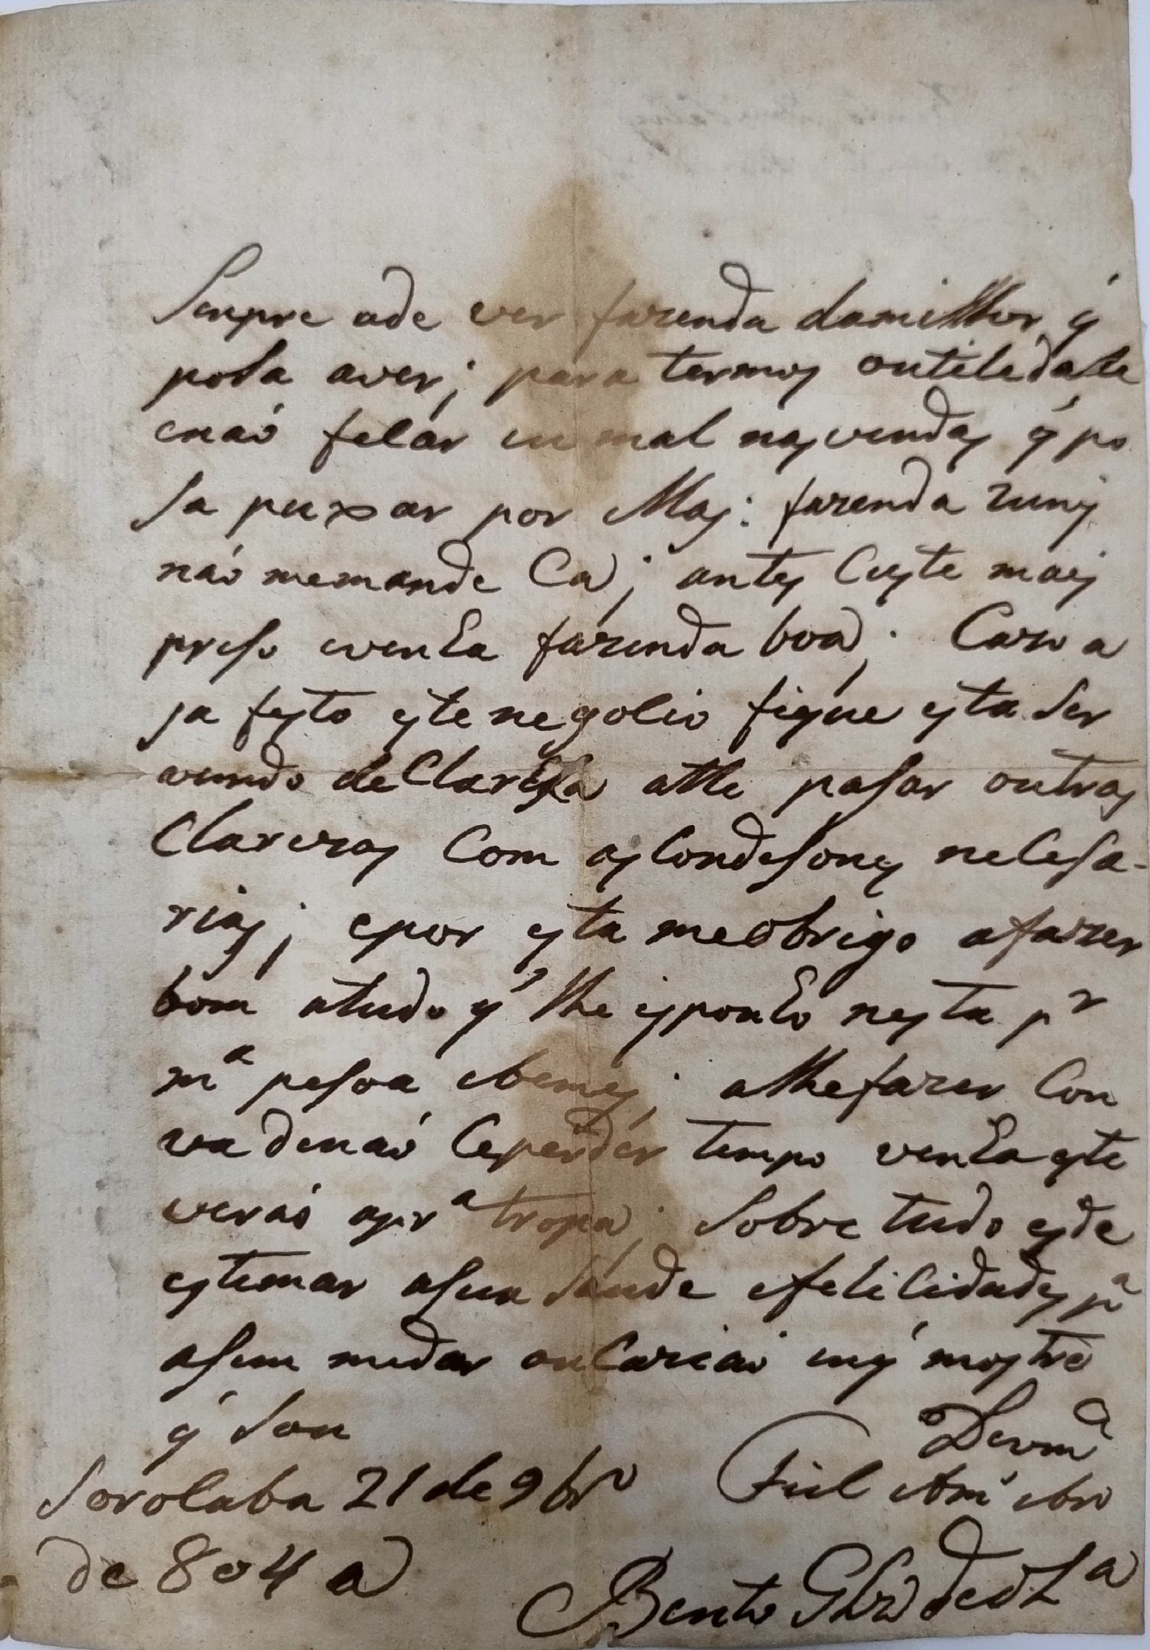 Senpre ade ver fazenda damilhor q'
posa aver; para termos outeledade
enaó felár en mal nas vendas q' po
sa puxar por Mas: fazenda runj
naó memande Ca; antes Custe mais
preso evenha fazenda boa; Cazo a
ja feyto este negocio fique esta Ser
vindo de Clareza athe pasar outras
Clarezas Com as Condesones necesa-
rias; epor esta meobrigo afazer
bom atudo q' lhe esponho nesta p.r
m.a pesoa ebenes; alhefazer Con
va denaó Ceperder tempo venha este
veraó apr.a tropa; Sobre tudo esde
estemar asua Saude efelicidades p.a
asim medar oucaziaó enq' mostre
q' Sou
De vm.ce
Sorocaba 21 de 9br.o Fiel Am.o
de 804 a
Bento Glz de